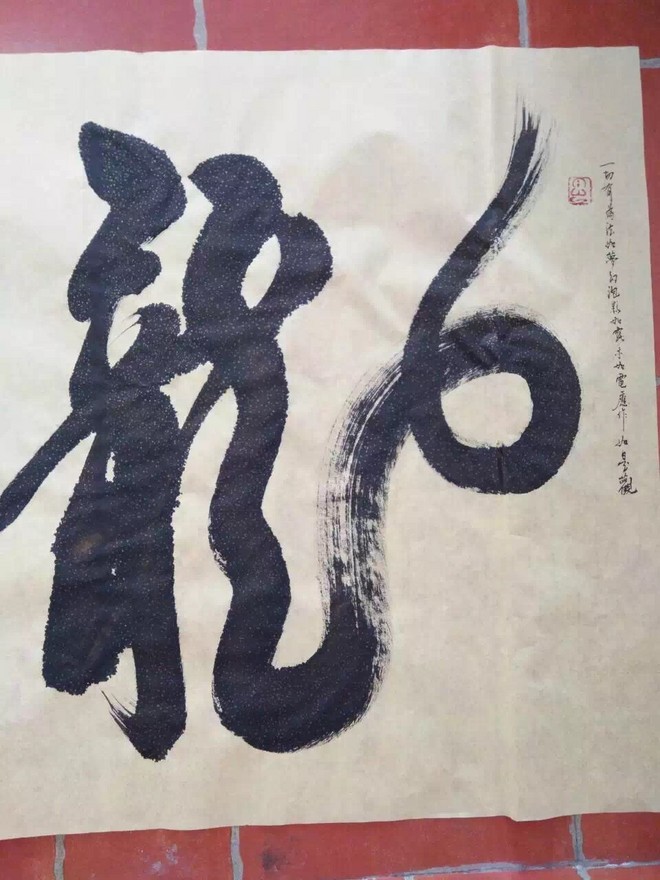 龍
一切有為法如夢幻泡影如露亦如電應作如是觀